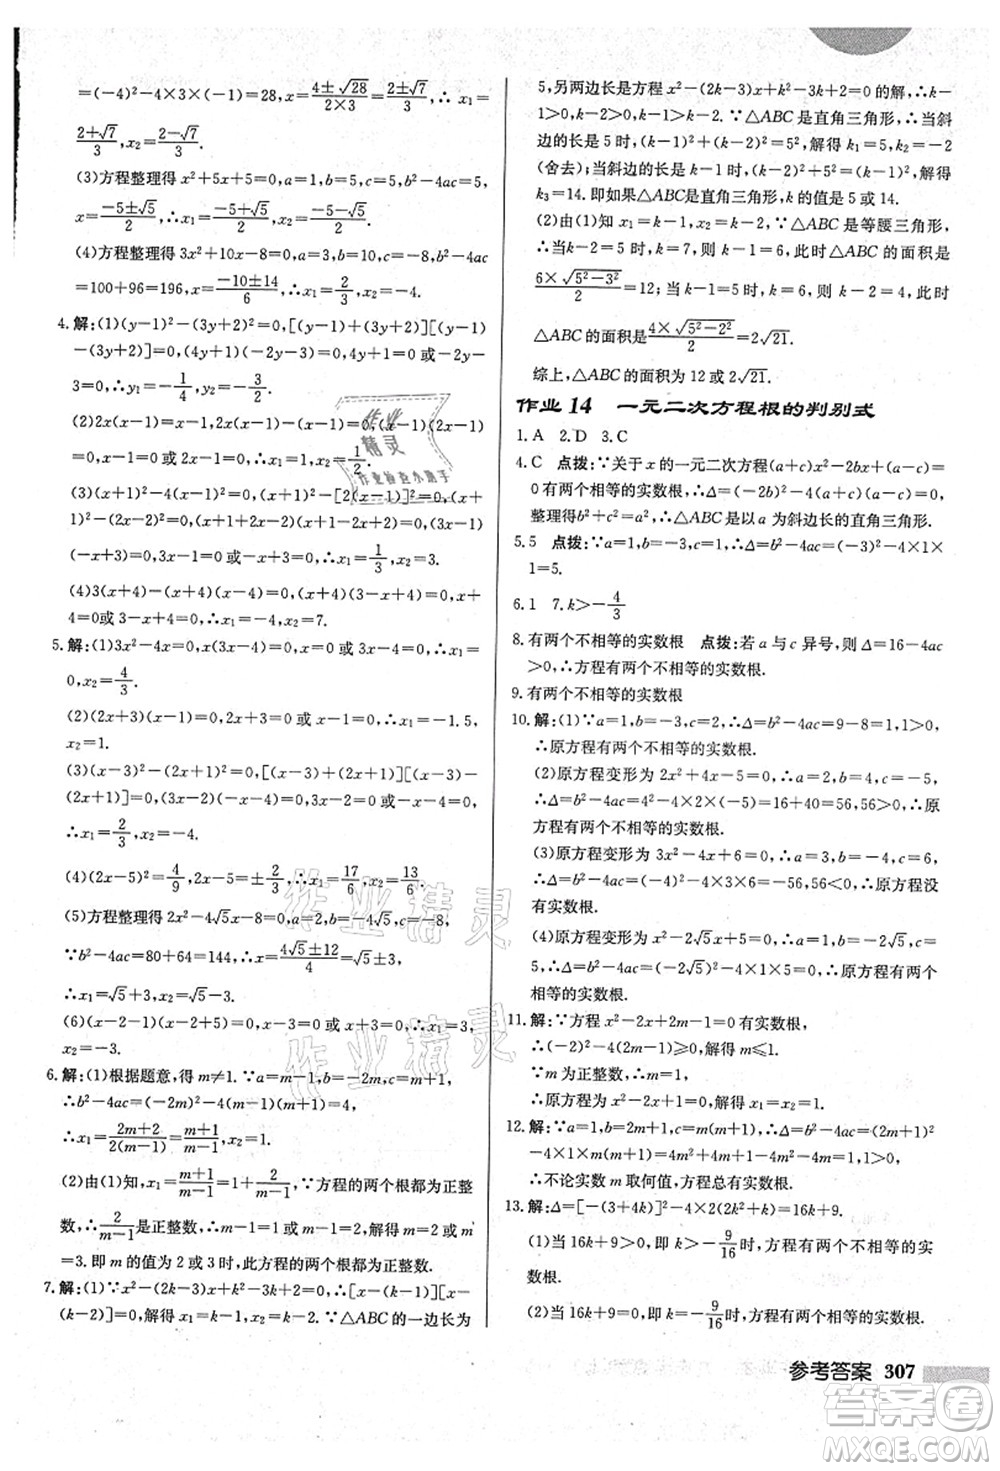 =(-4)²-4×3×(-1)=28,x=\frac{4±√28}{2×3}=\frac{2±√7}{3},∴x₁=
\frac{2+√7}{3},x₂=\frac{2-√7}{3}.
(3)方程整理得 x²+5x+5=0,a=1,b=5,c=5,b²-4ac=5,
x=\frac{-5±√5}{2},∴x₁=\frac{-5+√5}{2},x₂=\frac{-5-√5}{2}.
(4)方程整理得 3x²+10x-8=0,a=3,b=10,c=-8,b²-4ac
=100+96=196,x=\frac{-10±14}{6},∴x₁=\frac{2}{3},x₂=-4.
4.解:(1)(y-1)²-(2y+2)²=0,[(y-1)+(2y+2)][(y-1)
-(2y+2)]=0,(3y+1)(-y-3)=0,3y+1=0 或-y-3=
(2)(x-1)
(3)(x-1)²-[2(x-1)]²=0,
(-x+3)=0,3x-1=0 或-x+3=0,∴x₁=\frac{1}{3},x₂=3.
(4)3(x+4)-x(x+4)=0,(x+4)(3-x)=0,x+4=0
5.解:(1)3x²-4x=0,x(3x-4)=0,x=0 或 3x-4=0,∴x₁=
0,x₂=\frac{4}{3}.
(2)(2x+3)(x-1)=0,2x+3=0 或 x-1=0,∴x₁=-1.5,
x₂=1.
(3)(x-3)²-(2x+1)²=0,[(x-3)+(2x+1)][(x-3)-
(2x+1)]=0,(3x-2)(-x-4)=0,3x-2=0 或-x-4=
0,∴x₁=\frac{2}{3},x₂=-4.
(4)(2x-5)²=\frac{4}{9},2x-5=±\frac{2}{3},∴x₁=\frac{17}{6},x₂=\frac{13}{6}.
(5)方程整理得 2x²-4√5x-8=0,a=2,b=-4√5,c=-8,
∵b²-4ac=80+64=144,∴x=\frac{4√5±12}{4}=√5±3,
∴x₁=√5+3,x₂=√5-3.
(6)(x-1-2)(x-1-2+5)=0,x-3=0 或 x+2=0,∴x₁=3,
x₂=-2.
6.解:(1)根据题意,得 m≠1.∵a=m-1,b=-2m,c=m+1,
∴b²-4ac=(-2m)²-4(m-1)(m+1)=4,
∴x₁=\frac{2m+2}{2(m-1)}=\frac{m+1}{m-1},x₂=1.
(2)由(1)知 x₁=\frac{m+1}{m-1}=1+\frac{2}{m-1},∵方程的两个根都为正整
数,∴\frac{2}{m-1}是正整数,∴m-1=1 或 m-1=2,∴m=2 或 m
=3.即 m 的值为 2 或 3时,此方程的两个根都为正整数.
7.解:(1)∵x²-(2k-3)x+k²-3k+2=0,∴[x-(k-1)][x-
(k-2)]=0,解得 x₁=k-1,x₂=k-2.∵△ABC的一边长为
5,另两边长是方程 x²-(2k-3)x+k²-3k+2=0 的解,∴k-
1>0,k-2>0,∴k>2.∵△ABC 是直角三角形,∴当斜
边的长是 5 时,(k-1)²+(k-2)²=5²,解得 k₁=5,k₂=-2
(舍去);当斜边的长是 k-1时,5²+(k-2)²=(k-1)²,解得
k₃=14.即如果△ABC是直角三角形,k 的值是 5 或 14.
(2)由(1)知 x₁=k-1,x₂=k-2,∵△ABC 是等腰三角形,
∴当 k-2=5 时,k=7,则 k-1=6,此时△ABC 的面积是
\frac{6×√5²-3²}{2}=12;当 k-1=5 时,k=6,则 k-2=4,此时
△ABC的面积是\frac{4×√5²-2²}{2}=2√21.
综上,△ABC的面积为 12 或 2√21.
作业 14 一元二次方程根的判别式
1.A 2.D 3.C
4.C 点拨:∵关于x的一元二次方程(a+c)x²-2bx+(a-c)=
0 有两个相等的实数根,∴Δ=(-2b)²-4(a+c)(a-c)=0,
整理得 a²=b²+c²,∴△ABC是以 a 为斜边长的直角三角形.
5.5 点拨:∵a=1,b=-3,c=1,∴Δ=b²-4ac=(-3)²-4×1×
1=5.
6.1 7.k>-\frac{4}{3}
8.有两个不相等的实数根 点拨:若 a 与 c 异号,则 Δ=16-4ac
>0,∴方程有两个不相等的实数根.
9.有两个不相等的实数根
10.解:(1)∵a=1,b=-3,c=2,∴Δ=b²-4ac=9-8=1,1>0,
∴原方程有两个不相等的实数根.
(2)原方程变形为 2x²+4x-5=0.∵a=2,b=4,c=-5,
∴Δ=b²-4ac=4²-4×2×(-5)=16+40=56,56>0,∴原
方程有两个不相等的实数根.
(3)原方程变形为 3x²-4x+6=0.∵a=3,b=-4,c=6,
∴Δ=b²-4ac=(-4)²-4×3×6=-56,-56<0,∴原方程没
有实数根.
(4)原方程变形为 x²-2√5x+5=0.∵a=1,b=-2√5,c=
5,∴Δ=b²-4ac=(-2√5)²-4×1×5=0,∴原方程有两个
相等的实数根.
11.解:∵方程 x²-2x+2m-1=0 有实数根,
∴(-2)²-4(2m-1)≥0,解得 m≤1.
∵m 为正整数,∴m=1,
∴原方程为 x²-2x+1=0,则(x-1)²=0,解得 x₁=x₂=1.
12.解:∵a=1,b=2m+1,c=m(m+1),∴Δ=b²-4ac=(2m+1)²
-4×1×m(m+1)=4m²+4m+1-4m²-4m=1>0,
∴不论实数 m 取何值,方程总有实数根.
13.解:Δ=[-(3+4k)]²-4×2×2k²=16k+9.
(1)当 16k+9>0,即 k>-\frac{9}{16}时,方程有两个不相等的实
数根.
(2)当 16k+9=0,即 k=-\frac{9}{16}时,方程有两个相等的实数根.
参考答案 307
作业精灵
作业检查小助手
作业精灵
作业精灵
答案圈
MXQE.COM